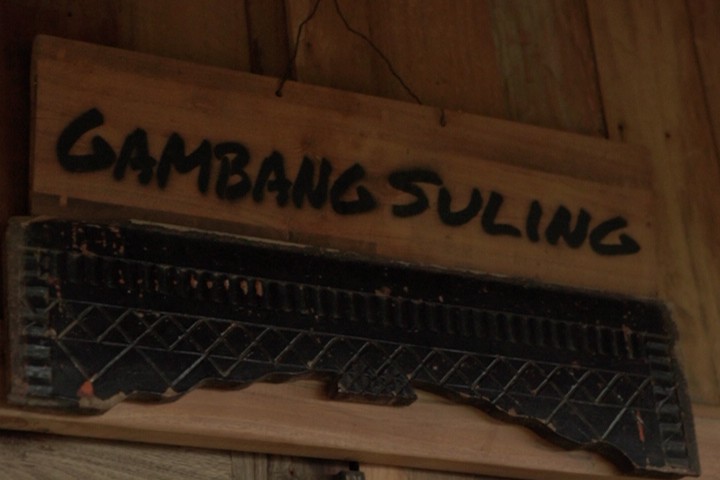 GAMBANG SULING